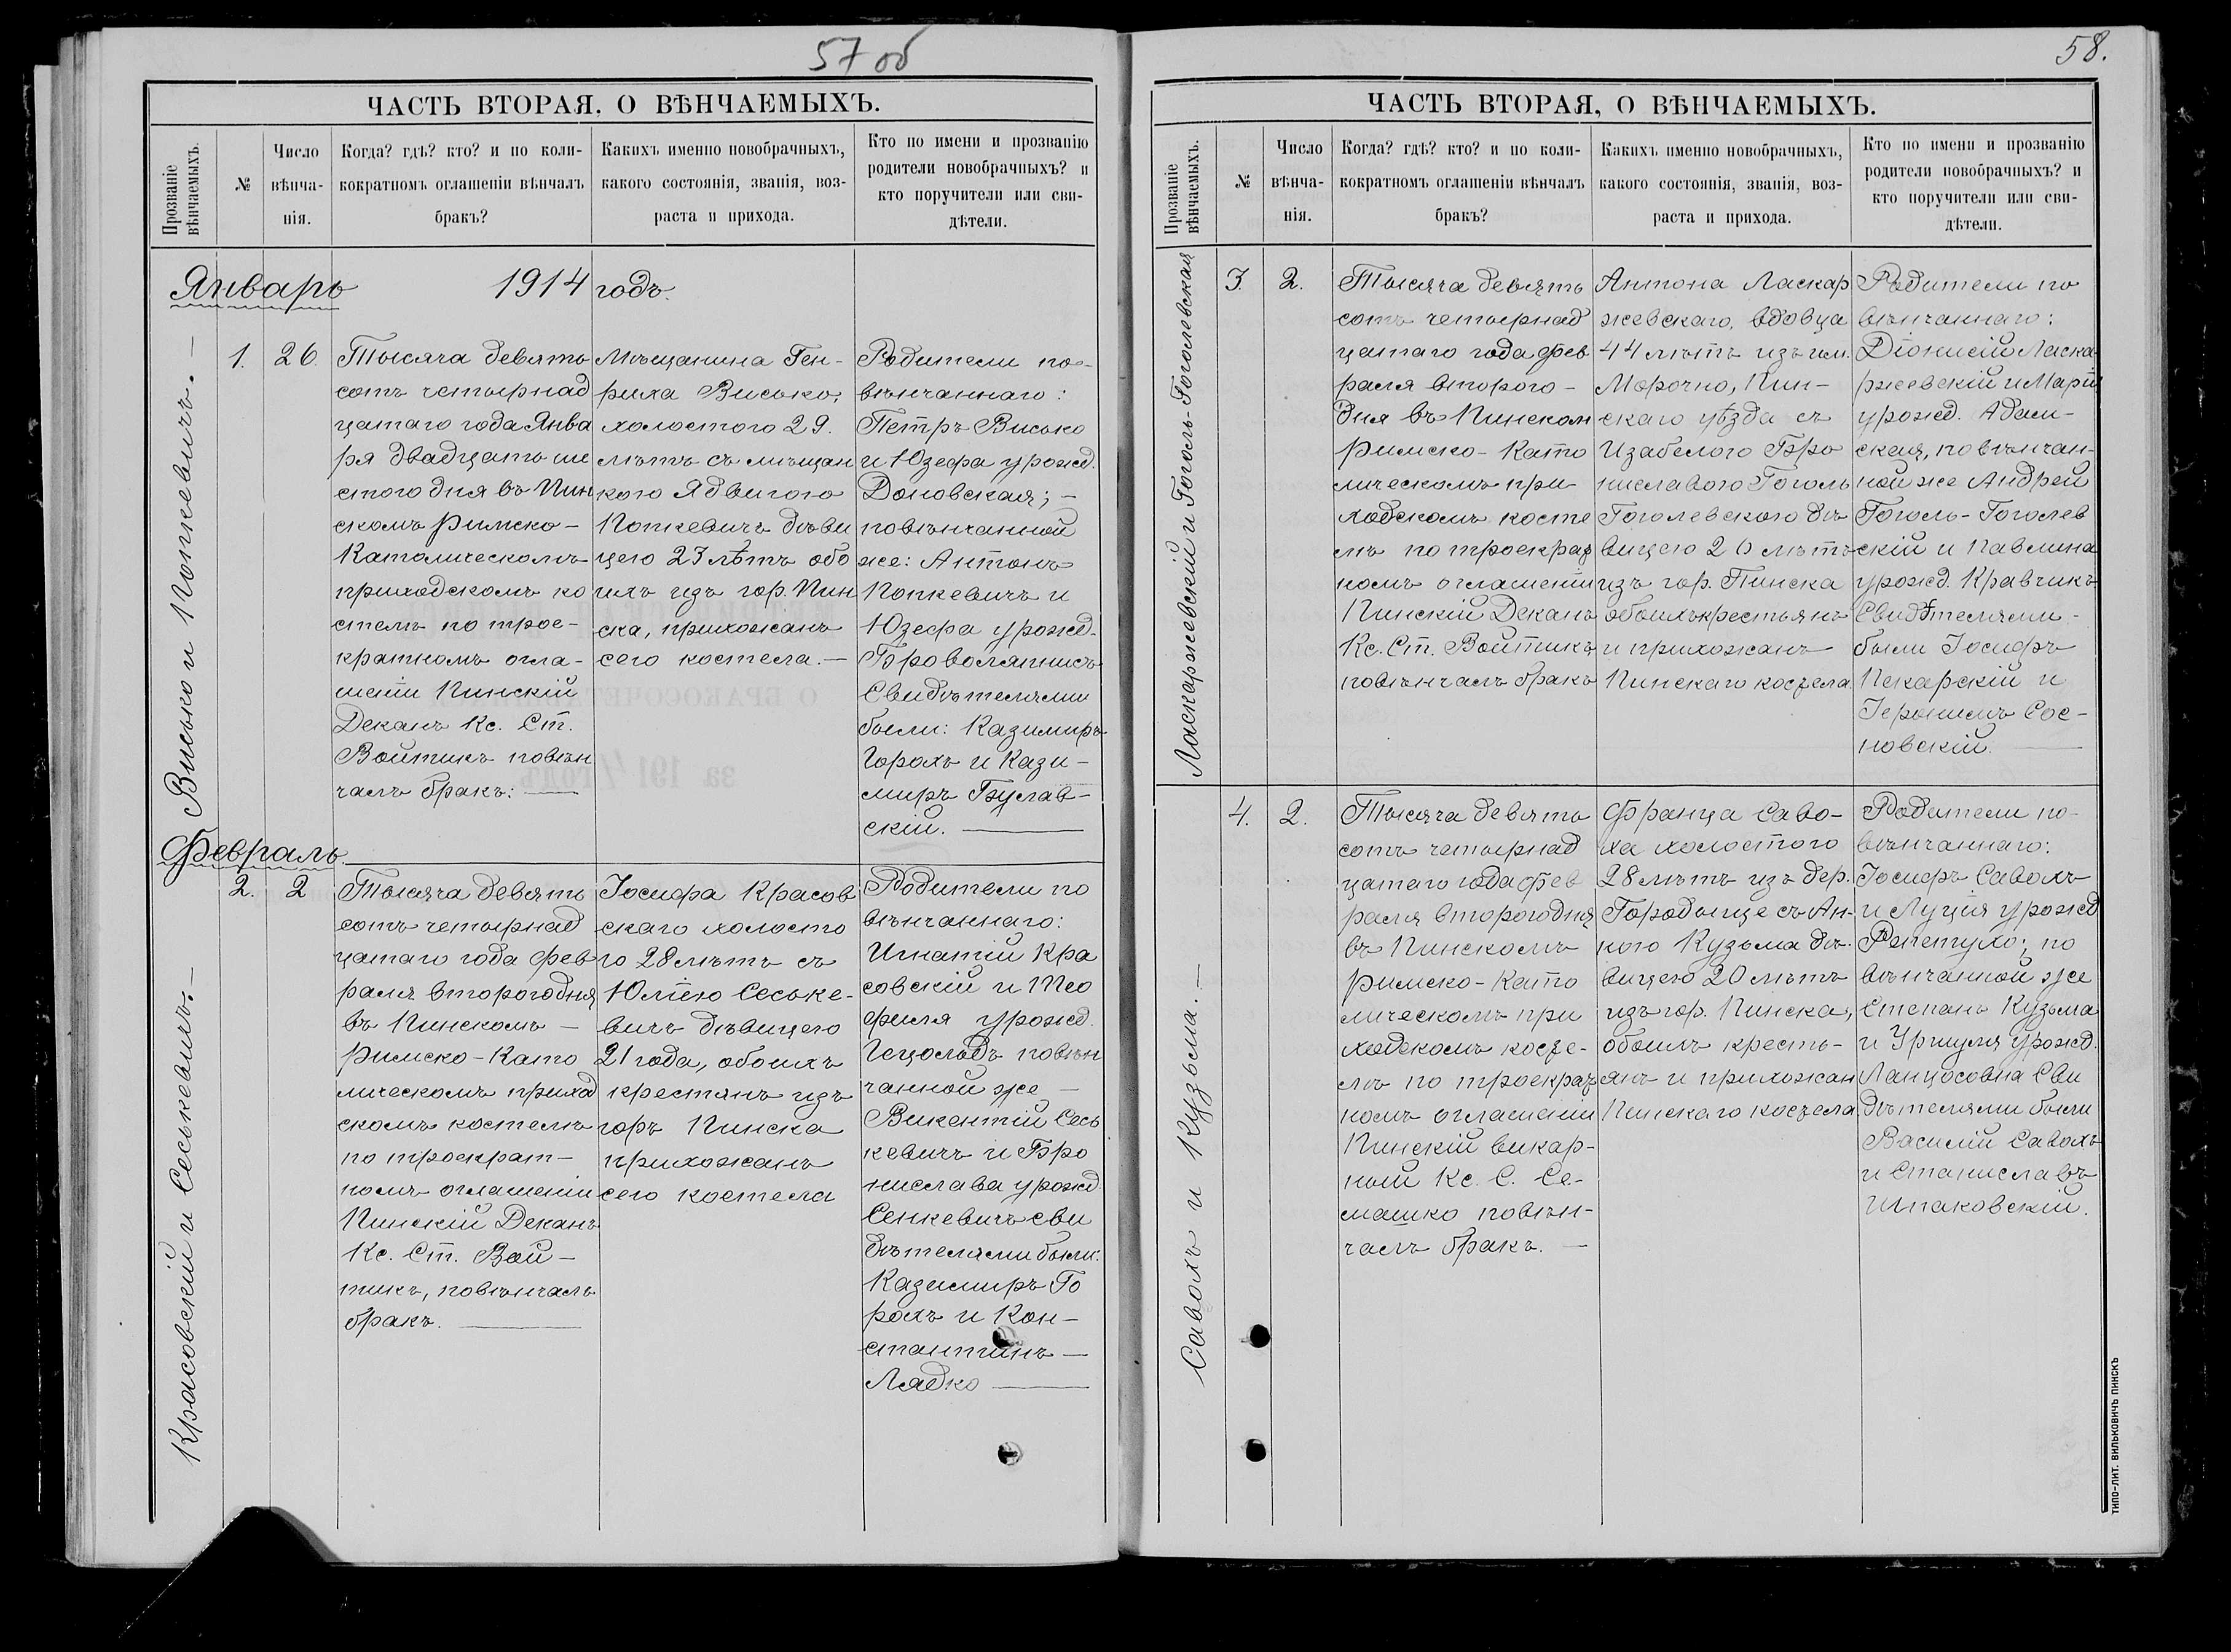 57 об
ЧАСТЬ ВТОРАЯ, О ВѢНЧАЕМЫХЪ.
Прозваніе
вѣнчаемыхъ.
№
Число
вѣнча-
нія.
Когда? гдѣ? кто? и по коли-
кократномъ оглашеніи вѣнчалъ
бракъ?
Какихъ именно новобрачныхъ,
какого состоянія, званія, воз-
раста и прихода.
Кто по имени и прозванію
родители новобрачныхъ? и
кто поручители или сви-
дѣтели.
Январь 1914 годъ.
Висько и Попкевичъ. —
1.
26.
Тысяча девять
сотъ четырнад
цатаго года Янва
ря двадцать ше
стого дня въ Пин
скомъ Римско-
Католическомъ
приходскомъ ко
стелѣ по трое-
кратномъ огла-
шеніи Пинскій
Деканъ Кс. Ст.
Войтикъ повѣн
чалъ бракъ: —
Мѣщанина Ген-
риха Висько,
холостого 29.
лѣтъ съ мѣщан
кою Ядвигою
Попкевичъ дѣви
цею 23 лѣтъ обо
ихъ изъ гор. Пин
ска, прихожанъ
сего костела. —
Родители по-
вѣнчаннаго:
Петръ Висько
и Юзефа урожд.
Доновская; —
повѣнчанной
же: Антонъ
Попкевичъ и
Юзефа урожд.
Броволяпнисъ
Свидѣтелями
были: Казимиръ
Горохъ и Кази-
миръ Буглав-
скій. —
Февраль
Красовскій и Сеськевичъ. —
2.
2
Тысяча девять
сотъ четырнад
цатаго года фев
раля второго дня
въ Пинскомъ —
Римско-Като
лическомъ приход
скомъ костелѣ
по троекрат-
номъ оглашеніи
Пинскій Деканъ
Кс. Ст. Вой-
тикъ, повѣнчалъ
бракъ. —
Іосифа Красов
скаго холосто
го 28 лѣтъ съ
Юліею Сеське-
вичъ дѣвицею
21 года, обоихъ
крестянъ изъ
горъ Пинска
прихожанъ
сего костела
Родители по
вѣнчаннаго:
Игнатій Кра
совскій и Тео
филя урожд.
Гецольдъ повѣн
чанной же —
Викентій Сесь
кевичъ и Бро
нислава урожд.
Сенкевичъ сви
дѣтелями были:
Казимиръ Го
рохъ и Кон-
стантинъ —
Лядко —
58.
ЧАСТЬ ВТОРАЯ, О ВѢНЧАЕМЫХЪ.
Прозваніе
вѣнчаемыхъ.
№
Число
вѣнча-
нія.
Когда? гдѣ? кто? и по коли-
кократномъ оглашеніи вѣнчалъ
бракъ?
Какихъ именно новобрачныхъ,
какого состоянія, званія, воз-
раста и прихода.
Кто по имени и прозванію
родители новобрачныхъ? и
кто поручители или сви-
дѣтели.
Ласкаржевскій и Гоголь-Гоголевская
3.
2.
Тысяча девять
сотъ четырнад
цатаго года фев
раля второго —
дня въ Пинском
Римско-Като
лическомъ при
ходскомъ косте
лѣ по троекрат
номъ оглашеніи
Пинскій Деканъ
Кс. Ст. Войтикъ
повѣнчалъ бракъ
Антона Ласкар
жевскаго, вдовца
44 лѣтъ изъ им.
Морочно, Пин-
скаго уѣзда съ
Изабелою Бро
ниславою Гоголь
Гоголевскою дѣ
вицею 20 лѣтъ
изъ гор. Пинска
обоихъ крестьянъ
и прихожанъ
Пинскаго костела
Родители по
вѣнчаннаго:
Діонисій Ласка
ржевскій и Марія
урожд. Адам-
ская, повѣнчан-
ной же Андрей
Гоголь-Гоголев
скій и Павлина
урожд. Кравчикъ
Свидѣтелями —
были Іосифъ
Пекарскій и
Іеронимъ Сос-
новскій. —
Савохъ и Кузьма. —
4.
2.
Тысяча девять
сотъ четырнад
цатаго года фев
раля второго дня
въ Пинскомъ
Римско-Като
лическомъ при
ходскомъ косте-
лѣ по троекрат
номъ оглашеніи
Пинскій викар-
ный Кс. С. Се-
машко повѣн-
чалъ бракъ. —
Франца Саво-
ха холостого
28 лѣтъ изъ дер.
Городыще съ Ан-
ною Кузьма дѣ-
вицею 20 лѣтъ
изъ гор. Пинска,
обоихъ кресть-
янъ и прихожан
Пинскаго костела
Родители по-
вѣнчаннаго:
Іосифъ Савохъ
и Луція урожд
Репетухо; по
вѣнчанной же
Степанъ Кузьма
и Уршуля урожд.
Ланцосовна Сви
дѣтелями были
Василій Савохъ
и Станиславъ
Шпаковскій.
ТИПО-ЛИТ. ВИЛЬКОВИЧЪ ПИНСКЪ